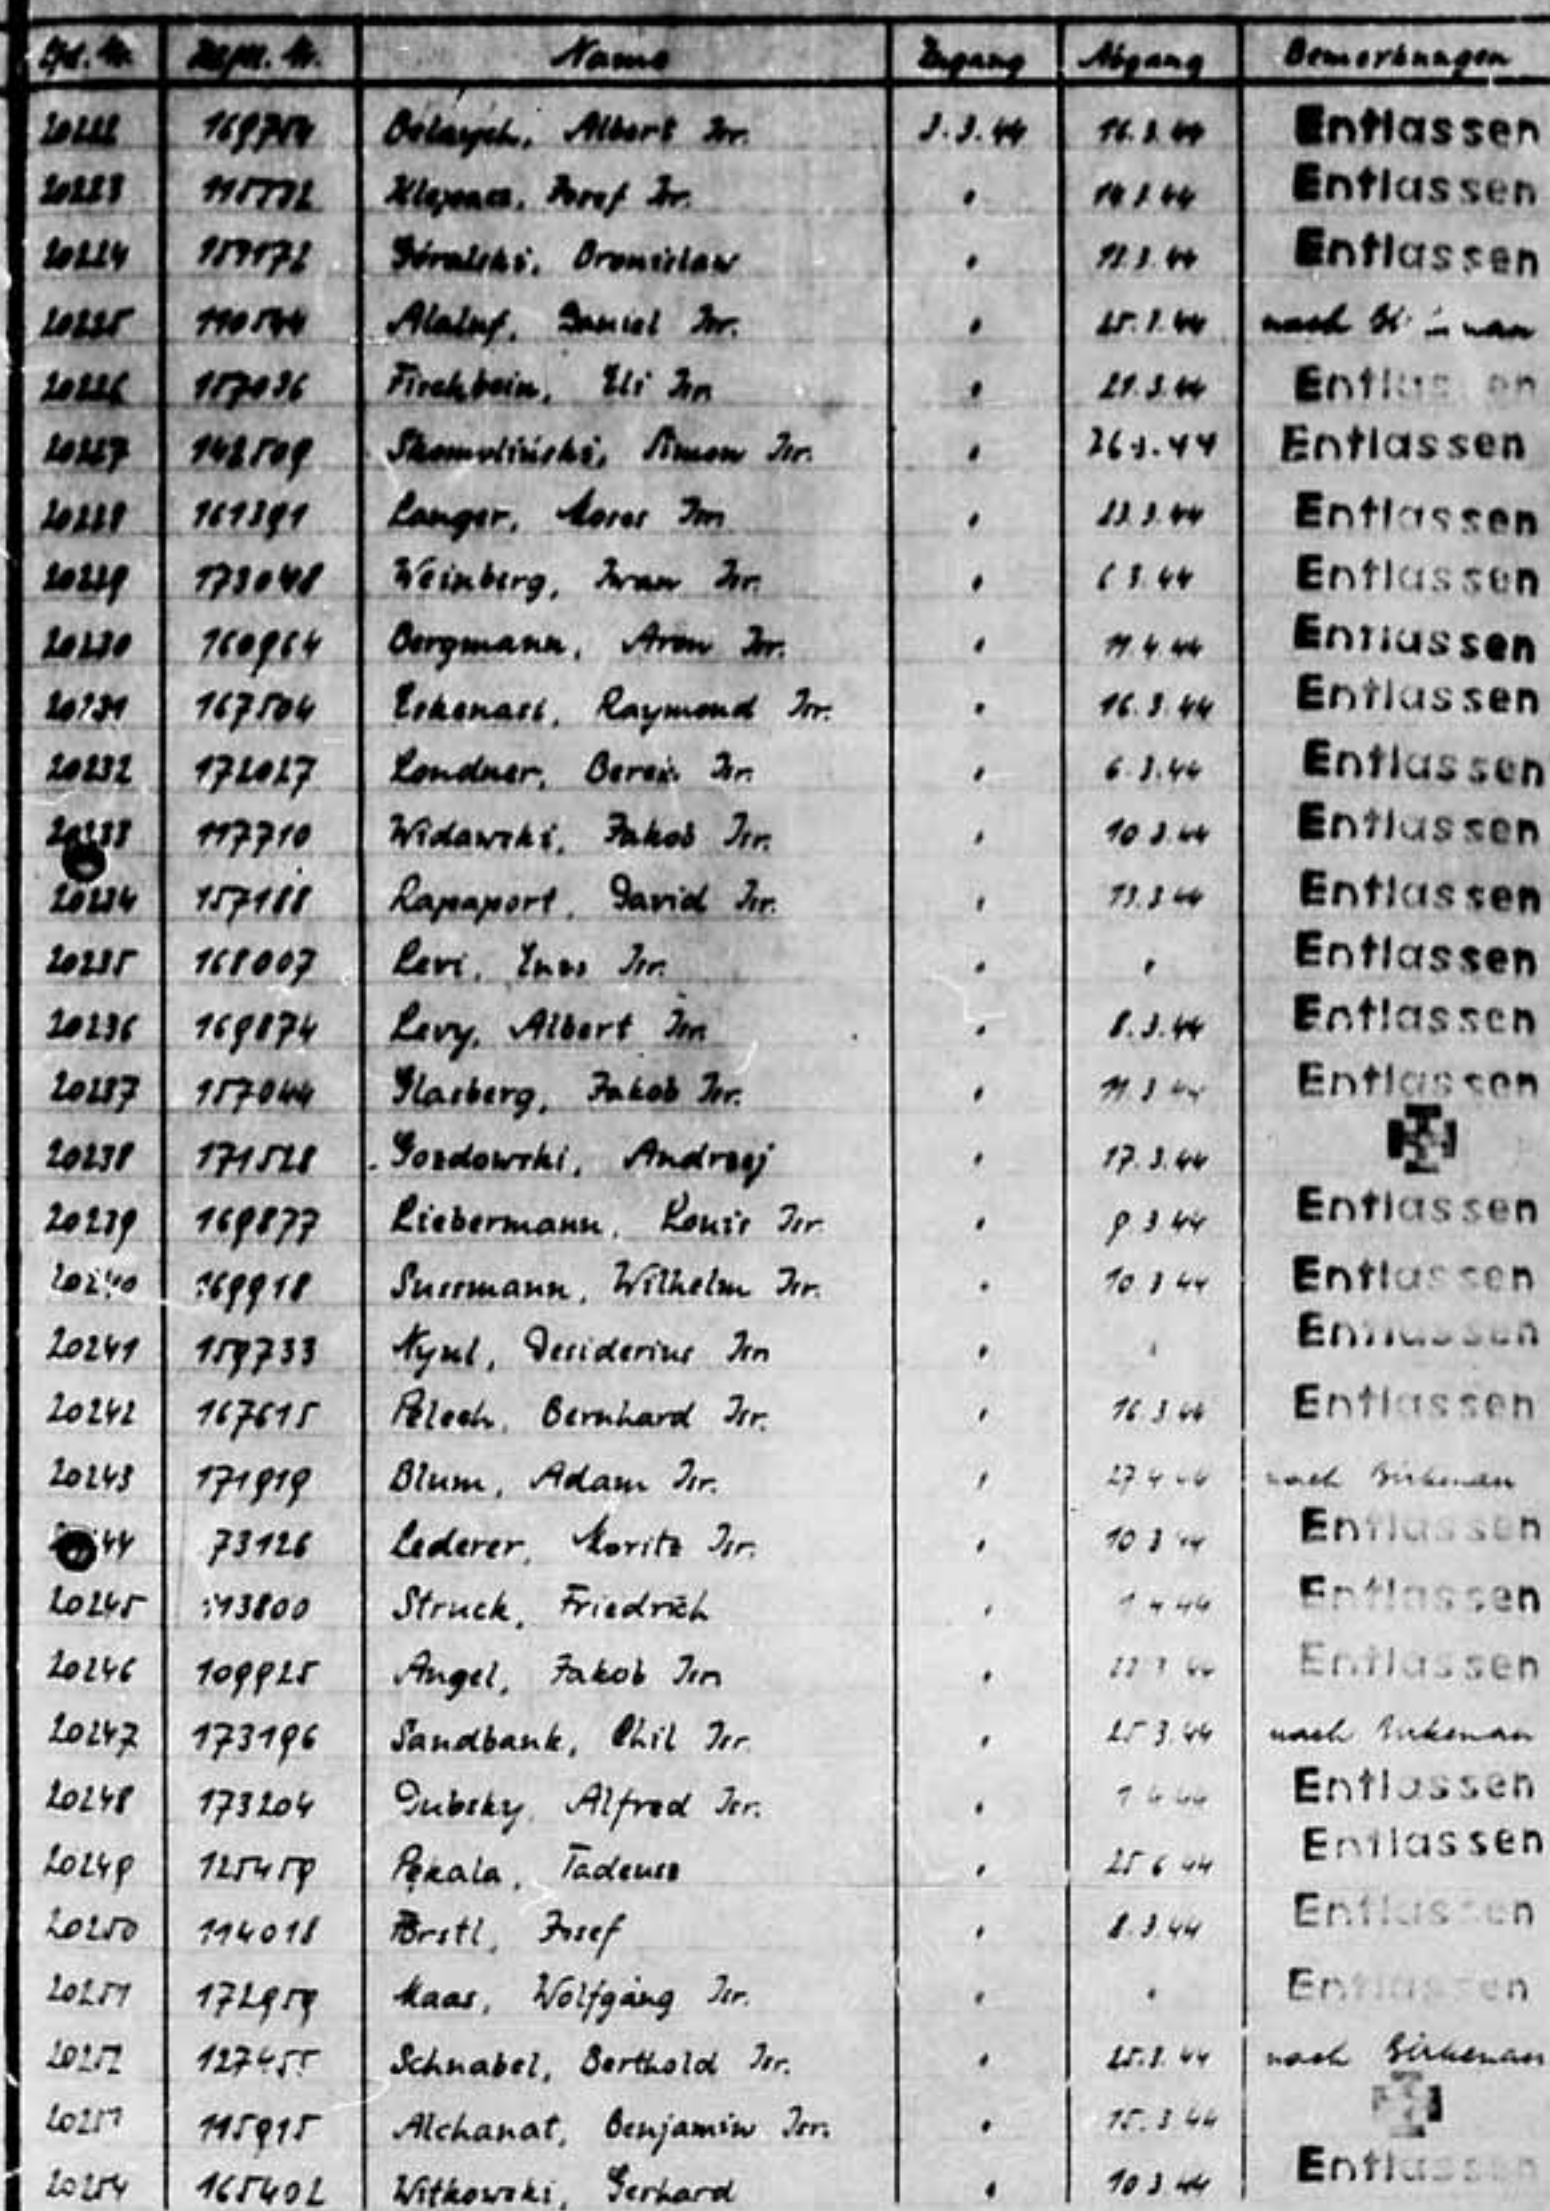 Lfd. Nr. Name Zugang Abgang Bemerkungen
20222 169754 Albert Isr. 3.3.44 16.3.44 Entlassen
20223 Josef Isr. " 14.3.44 Entlassen
20224 Góralski, Bronislaw " Entlassen
20225 110544 Alaluf, Daniel Isr. " 25.3.44 nach
20226 157036 Fischbein, Eli Isr. " 21.3.44 Entlassen
20227 142509 Simon Isr. " 26.3.44 Entlassen
20228 161391 Langer, Moses Isr. " 23.3.44 Entlassen
20229 173048 Weinberg, Iwan Isr. " 6.3.44 Entlassen
20230 160964 Bergmann, Aron Isr. " 11.4.44 Entlassen
20231 167504 Eskenasi, Raymond Isr. " 16.3.44 Entlassen
20232 172027 Londner, Isr. " 6.3.44 Entlassen
20233 117710 Widawski, Jakob Isr. " 10.3.44 Entlassen
20234 157188 Rapaport, David Isr. " 13.3.44 Entlassen
20235 168007 Levi, Isr. " " Entlassen
20236 169874 Levy, Albert Isr. " 8.3.44 Entlassen
20237 157044 Glasberg, Jakob Isr. " 11.3.44 Entlassen
20238 171528 Gozdowski, Andrzej " 17.3.44
20239 169877 Liebermann, Louis Isr. " 9.3.44 Entlassen
20240 169918 Sussmann, Wilhelm Isr. " 10.3.44 Entlassen
20241 159733 Desiderius Isr. " " Entlassen
20242 167615 Bernhard Isr. " 16.3.44 Entlassen
20243 171919 Blum, Adam Isr. " 27.4.44 nach Birkenau
44 73126 Lederer, Moritz Isr. " 10.3.44 Entlassen
20245 113800 Struck, Friedrich " 1.4.44 Entlassen
20246 109925 Angel, Jakob Isr. " 22.3.44 Entlassen
20247 173196 Sandbank, Chil Isr. " 25.3.44 nach Birkenau
20248 173204 Dubsky, Alfred Isr. " 1.4.44 Entlassen
20249 125459 Pękala, Tadeusz " 25.6.44 Entlassen
20250 114018 Josef " 8.3.44 Entlassen
20251 172959 Maas, Wolfgang Isr. " " Entlassen
20252 127455 Schnabel, Berthold Isr. " 25.3.44 nach Birkenau
115915 Alchanat, Benjamin Isr. " 15.3.44
20254 165402 Witkowski, Gerhard " 10.3.44 Entlassen